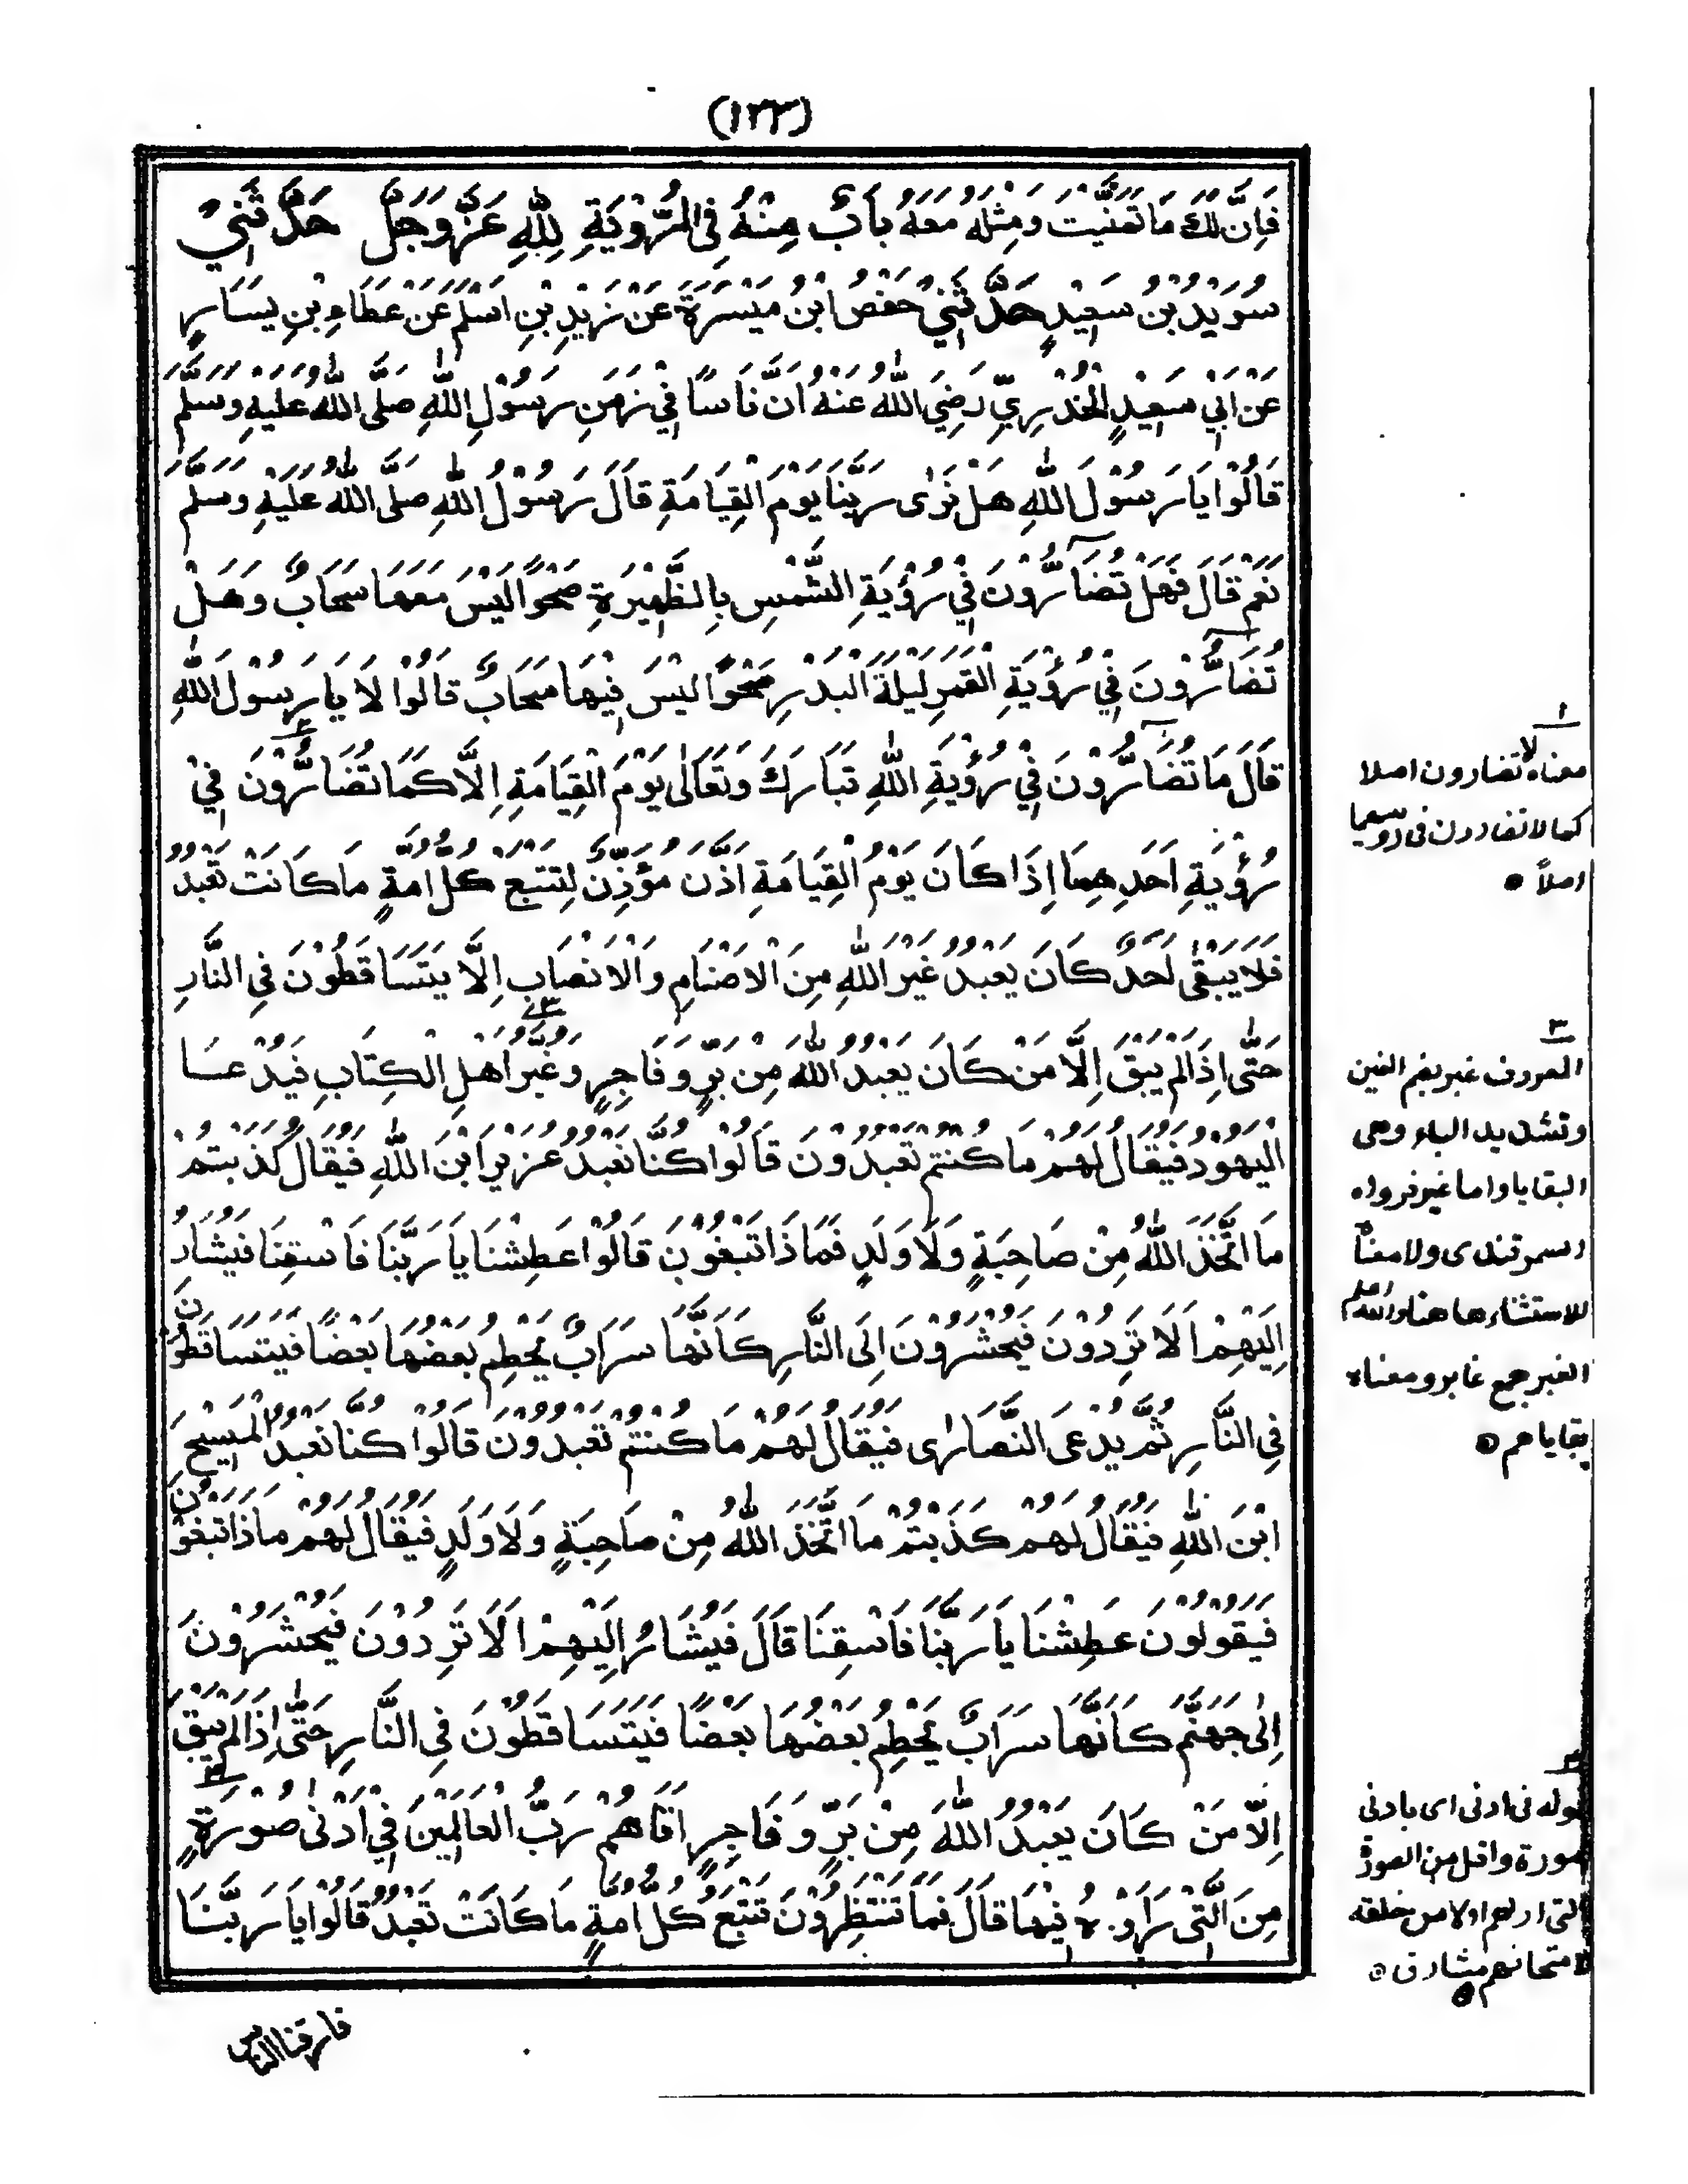 (١٢٣)
فَاِنَّ لَكَ مَا تَمَنَّيْتَ وَمِثْلَهُ مَعَهُ بَابٌ مِنْهُ فِى الرُّؤْيَةِ لِلّٰهِ عَزَّ وَجَلَّ حَدَّثَنِيْ
سُوَيْدُ بْنُ سَعِيْدٍ حَدَّثَنِيْ حَفْصُ ابْنُ مَيْسَرَةَ عَنْ زَيْدِ بْنِ اَسْلَمَ عَنْ عَطَاءِ بْنِ يَسَارٍ
عَنْ اَبِيْ سَعِيْدٍ الْخُدْرِيِّ رَضِيَ اللّٰهُ عَنْهُ اَنَّ نَاسًا فِيْ زَمَنِ رَسُوْلِ اللّٰهِ صَلَّى اللّٰهُ عَلَيْهِ وَسَلَّمَ
قَالُوْا يَا رَسُوْلَ اللّٰهِ هَلْ نَرٰى رَبَّنَا يَوْمَ الْقِيَامَةِ قَالَ رَسُوْلُ اللّٰهِ صَلَّى اللّٰهُ عَلَيْهِ وَسَلَّمَ
نَعَمْ قَالَ فَهَلْ تُضَارُّوْنَ فِيْ رُؤْيَةِ الشَّمْسِ بِالظَّهِيْرَةِ صَحْوًا لَيْسَ مَعَهَا سَحَابٌ وَهَلْ
تُضَارُّوْنَ فِيْ رُؤْيَةِ الْقَمَرِ لَيْلَةَ الْبَدْرِ صَحْوًا لَيْسَ فِيْهَا سَحَابٌ قَالُوْا لَا يَا رَسُوْلَ اللّٰهِ
قَالَ مَا تُضَارُّوْنَ فِيْ رُؤْيَةِ اللّٰهِ تَبَارَكَ وَتَعَالٰى يَوْمَ الْقِيَامَةِ اِلَّا كَمَا تُضَارُّوْنَ فِيْ
رُؤْيَةِ اَحَدِهِمَا اِذَا كَانَ يَوْمُ الْقِيَامَةِ اَذَّنَ مُؤَذِّنٌ لِتَتَّبِعْ كُلُّ اُمَّةٍ مَا كَانَتْ تَعْبُدُ
فَلَا يَبْقٰى اَحَدٌ كَانَ يَعْبُدُ غَيْرَ اللّٰهِ مِنَ الْاَصْنَامِ وَالْاَنْصَابِ اِلَّا يَتَسَاقَطُوْنَ فِى النَّارِ
حَتّٰى اِذَا لَمْ يَبْقَ اِلَّا مَنْ كَانَ يَعْبُدُ اللّٰهَ مِنْ بَرٍّ وَفَاجِرٍ وَغُبَّرِ اَهْلِ الْكِتَابِ فَيُدْعَا
الْيَهُوْدُ فَيُقَالُ لَهُمْ مَا كُنْتُمْ تَعْبُدُوْنَ قَالُوْا كُنَّا نَعْبُدُ عُزَيْرَ ابْنَ اللّٰهِ فَيُقَالُ كَذَبْتُمْ
مَا اتَّخَذَ اللّٰهُ مِنْ صَاحِبَةٍ وَلَا وَلَدٍ فَمَا ذَا تَبْغُوْنَ قَالُوْا عَطِشْنَا يَا رَبَّنَا فَاسْقِنَا فَيُشَارُ
اِلَيْهِمْ اَلَا تَرِدُوْنَ فَيُحْشَرُوْنَ اِلَى النَّارِ كَاَنَّهَا سَرَابٌ يَحْطِمُ بَعْضُهَا بَعْضًا فَيَتَسَاقَطُوْنَ
فِى النَّارِ ثُمَّ يُدْعَى النَّصَارٰى فَيُقَالُ لَهُمْ مَا كُنْتُمْ تَعْبُدُوْنَ قَالُوْا كُنَّا نَعْبُدُ الْمَسِيْحَ
ابْنَ اللّٰهِ فَيُقَالُ لَهُمْ كَذَبْتُمْ مَا اتَّخَذَ اللّٰهُ مِنْ صَاحِبَةٍ وَلَا وَلَدٍ فَيُقَالُ لَهُمْ مَاذَا تَبْغُوْنَ
فَيَقُوْلُوْنَ عَطِشْنَا يَا رَبَّنَا فَاسْقِنَا قَالَ فَيُشَارُ اِلَيْهِمْ اَلَا تَرِدُوْنَ فَيُحْشَرُوْنَ
اِلٰى جَهَنَّمَ كَاَنَّهَا سَرَابٌ يَحْطِمُ بَعْضُهَا بَعْضًا فَيَتَسَاقَطُوْنَ فِى النَّارِ حَتّٰى اِذَا لَمْ يَبْقَ
اِلَّا مَنْ كَانَ يَعْبُدُ اللّٰهَ مِنْ بَرٍّ وَفَاجِرٍ اَتَاهُمْ رَبُّ الْعَالَمِيْنَ فِيْ اَدْنٰى صُوْرَةٍ
مِنَ الَّتِيْ رَاَوْهُ فِيْهَا قَالَ فَمَا تَنْتَظِرُوْنَ تَتْبَعُ كُلُّ اُمَّةٍ مَا كَانَتْ تَعْبُدُ قَالُوْا يَا رَبَّنَا
فارقنا الناس
١
معناه لا تضارون اصلا
كما لا تضارون فى رويتهما
اصلاً
٣
المعروف غبر بضم الغين
وتشديد الباء وهى
البقايا واما غير فرواه
السمرقندى ولا معنا
للاستثناء هاهنا والله اعلم
الغبر جمع غابر ومعناه
بقاياهم
٣
قوله فى ادنى اى بادنى
صورة واقل من الصورة
التى اراهم اولا من خلقه
لامتحانهم مشارق